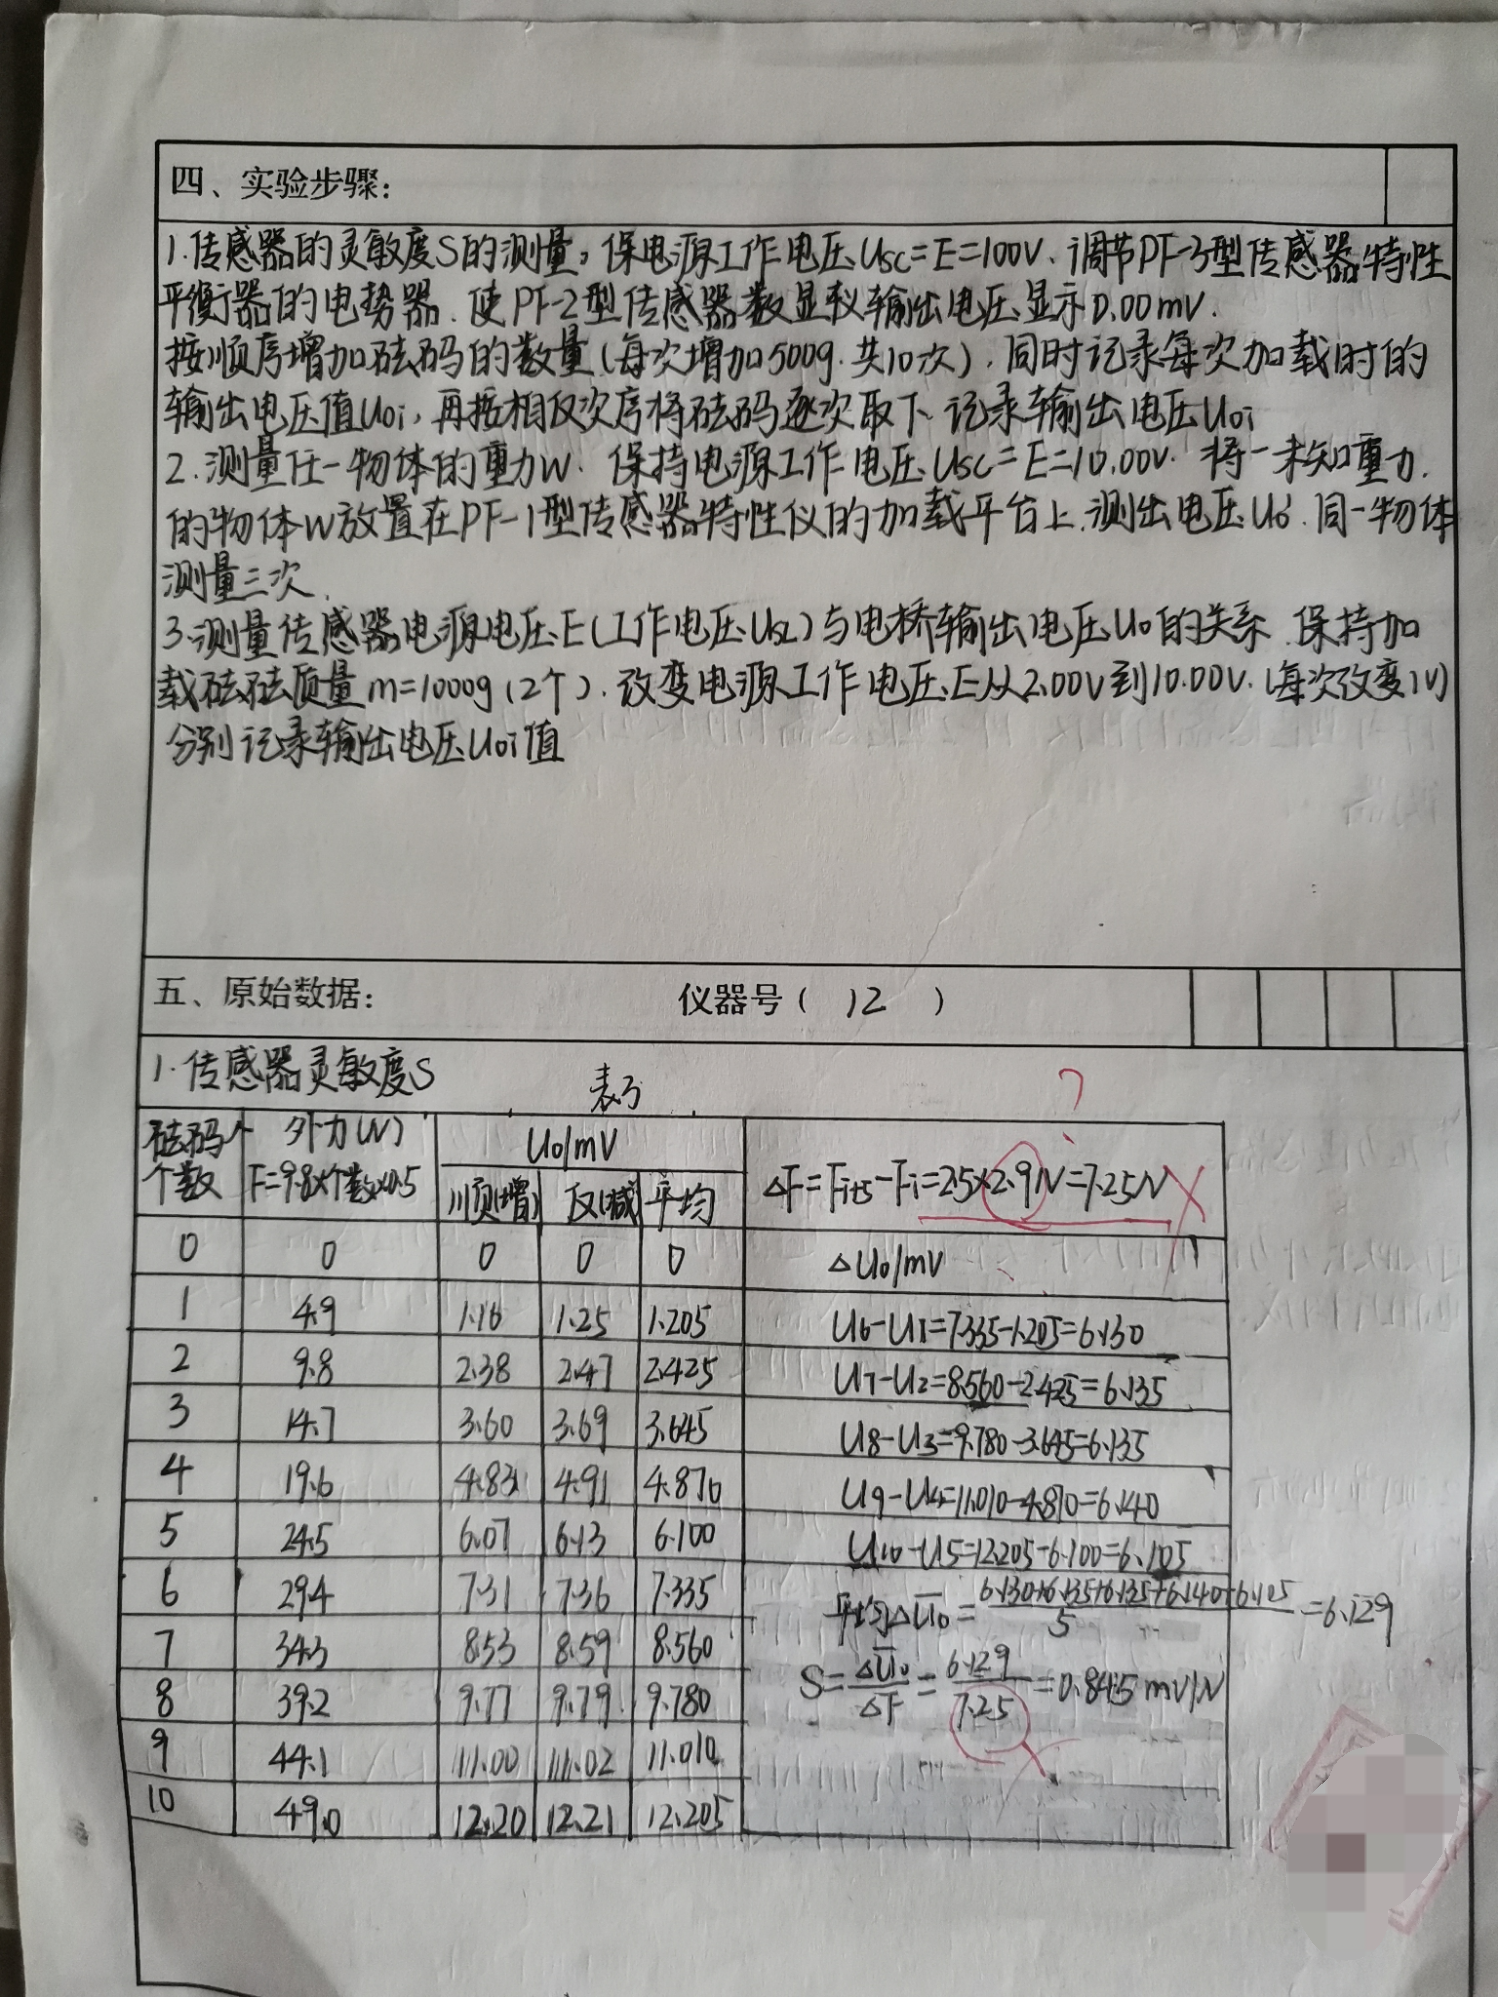 四、实验步骤：
1.传感器的灵敏度S的测量，保电源工作电压Usc=E=100V、调节PF-3型传感器特性
平衡器的电势器.使PF-2型传感器数显仪输出电压显示0.00mV.
按顺序增加砝码的数量(每次增加500g.共10次),同时记录每次加载时的
输出电压值Uoi,再按相反次序将砝码逐次取下、记录输出电压Uoi
2.测量任一物体的重力W.保持电源工作电压Usc=E=10.00V.将一未知重力.
的物体W放置在PF-1型传感器特性仪的加载平台上.测出电压Uo'.同一物体
测量三次.
3.测量传感器电源电压E(工作电压Usc)与电桥输出电压Uo的关系.保持加
载砝砝质量m=1000g(2个).改变电源工作电压E从2.00V到10.00V.(每次改变1V)
分别记录输出电压Uoi值
五、原始数据： 仪器号( 12 )
1.传感器灵敏度S
表3
?
砝码个 外力(N) Uo/mV
个数 F=9.8×个数×0.5 顺(增) 反(减) 平均 △F=Fi+5-Fi=2.5×2.9N=7.25N
0 0 0 0 0 △Uo/mV
1 4.9 1.16 1.25 1.205 U6-U1=7.335-1.205=6.130
2 9.8 2.38 2.47 2.425 U7-U2=8.560-2.425=6.135
3 14.7 3.60 3.69 3.645 U8-U3=9.780-3.645=6.135
4 19.6 4.83 4.91 4.870 U9-U4=11.010-4.870=6.140
5 24.5 6.07 6.13 6.100 U10-U5=12.205-6.100=6.105
6 29.4 7.31 7.36 7.335 平均△Uo=6.130+6.135+6.135+6.140+6.105/5=6.129
7 34.3 8.53 8.59 8.560 S=△Uo/△F=6.129/7.25=0.845 mV/N
8 39.2 9.77 9.79 9.780
9 44.1 11.00 11.02 11.010
10 49.0 12.20 12.21 12.205